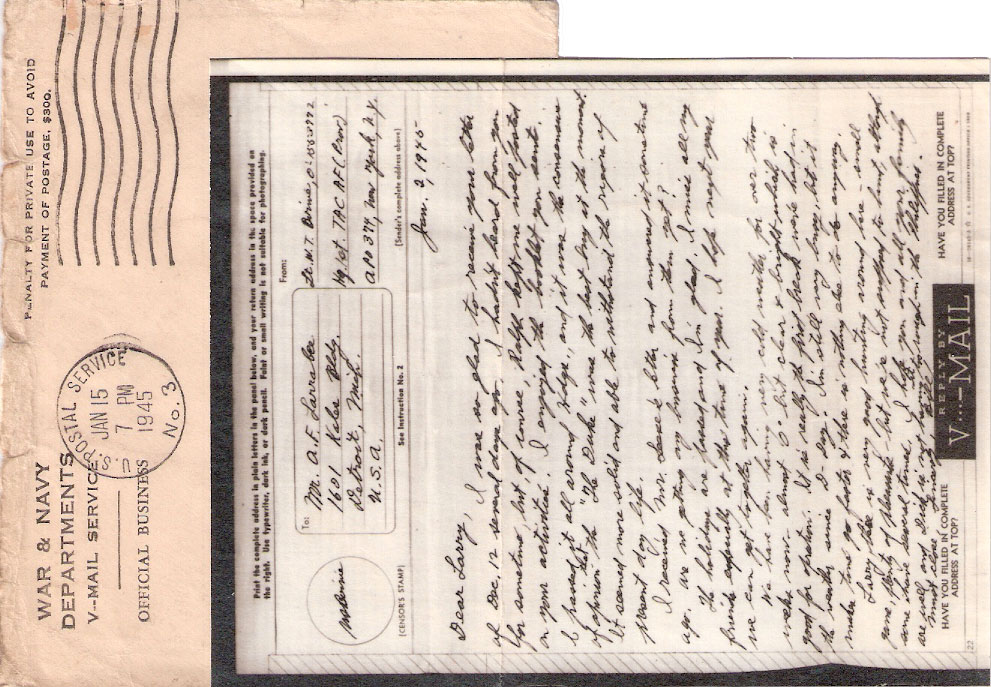 WAR & NAVY
DEPARTMENTS
V--MAIL SERVICE
OFFICIAL BUSINESS
U.S. POSTAL SERVICE
JAN 15
7 PM
1945
No. 3
PENALTY FOR PRIVATE USE TO AVOID
PAYMENT OF POSTAGE, $300.
Print the complete address in plain letters in the panel below, and your return address in the space provided on
the right. Use typewriter, dark ink, or dark pencil. Faint or small writing is not suitable for photographing.
(CENSOR'S STAMP)
To:
Mr. A.F.
1601 Bldg.
Detroit, Mich.
U.S.A.
See Instruction No. 2
From:
Lt. W.T.
Hq 1st. TAC AF (Prov)
APO 374, New York, N.Y.
(Sender's complete address above)
Jan. 2, 1945
Dear Larry,
I was so glad to receive your letter
of Dec. 12 several days ago. I hadn't heard from you
for sometime, but, of course, Ralph kept me well posted
on your activities. I enjoyed the booklet you sent.
I passed it all around Hdqs., and it was the consensus
of opinion that the "De Luxe" was the best buy at the moment.
It seemed more solid and able to withstand the rigors of
present day life.
I received Mr. letter and answered it sometime
ago. Are we getting any business from them yet?
The holidays are passed and I'm glad. I misses all my
friends especially at this time of year. I hope next year
we can get together again.
We have been having very cold weather for over two
weeks now - almost 0° but clear & brightest which is
good for operation. It is really the first break we've had in
the weather since D-day. I'm still very busy, but it
makes time go faster & there is nothing else to do anyway
Larry, there is very good hunting around here - small
game plenty of pheasants but we're not suppose to hunt altho
some have several times. I hope you and all your family
are well and Dick is not having it too rough in the Pacific.
HAVE YOU FILLED IN COMPLETE
ADDRESS AT TOP?
REPLY BY
V···—MAIL
HAVE YOU FILLED IN COMPLETE
ADDRESS AT TOP?